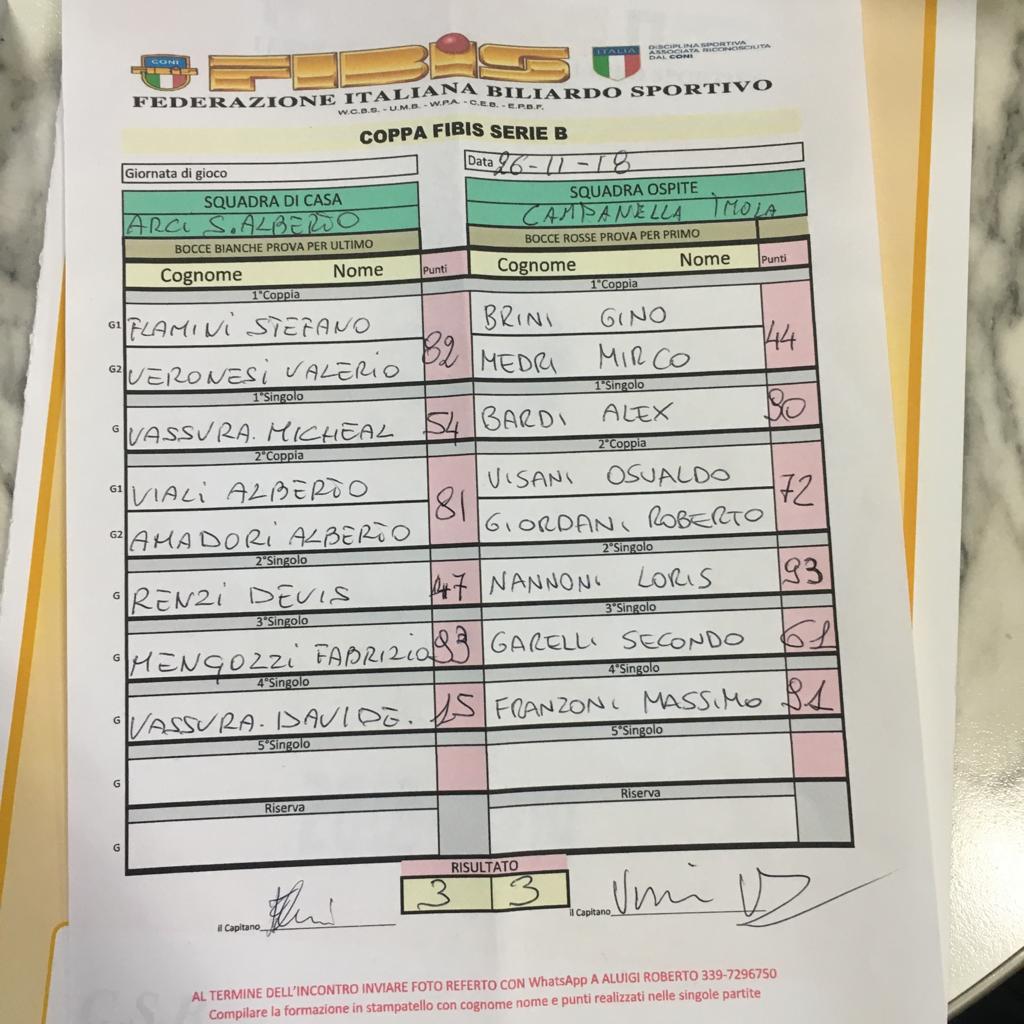 CONI
FIBIS
ITALIA
DISCIPLINA SPORTIVA
ASSOCIATA RICONOSCIUTA
DAL CONI
FEDERAZIONE ITALIANA BILIARDO SPORTIVO
W.C.B.S. - U.M.B. - W.P.A. - C.E.B. - E.P.B.F.
COPPA FIBIS SERIE B
Giornata di gioco
Data 26-11-18
SQUADRA DI CASA
SQUADRA OSPITE
ARCI S.ALBERTO
CAMPANELLA IMOLA
BOCCE BIANCHE PROVA PER ULTIMO
BOCCE ROSSE PROVA PER PRIMO
Cognome Nome Punti Cognome Nome Punti
1°Coppia 1°Coppia
G1 FLAMINI STEFANO 82 BRINI GINO 44
G2 VERONESI VALERIO MEDRI MIRCO
1°Singolo 1°Singolo
G VASSURA. MICHEAL 54 BARDI ALEX 90
2°Coppia 2°Coppia
G1 VIALI ALBERTO 81 VISANI OSVALDO 72
G2 AMADORI ALBERTO GIORDANI ROBERTO
2°Singolo 2°Singolo
G RENZI DEVIS 47 NANNONI LORIS 93
3°Singolo 3°Singolo
G MENGOZZI FABRIZIO 93 GARELLI SECONDO 61
4°Singolo 4°Singolo
G VASSURA. DAVIDE. 15 FRANZONI MASSIMO 91
5°Singolo 5°Singolo
G
Riserva Riserva
G
RISULTATO
3 3
il Capitano
il Capitano
AL TERMINE DELL'INCONTRO INVIARE FOTO REFERTO CON WhatsApp A ALUIGI ROBERTO 339-7296750
Compilare la formazione in stampatello con cognome nome e punti realizzati nelle singole partite